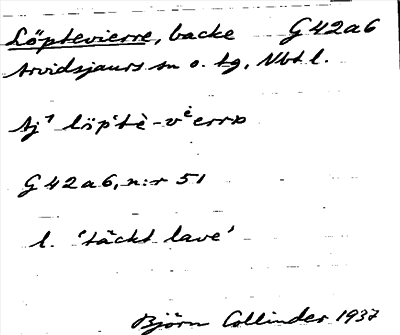 Löptevierre, backe G42a6
Arvidsjaurs sn o. tg, Nbt l.
löp'tè-vèerrɒ
G42a6, n:r 51
l. 'täckt lave'
Björn Collinder 1937